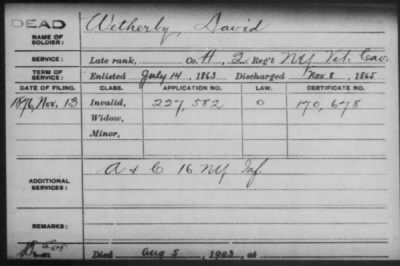 DEAD
NAME OF SOLDIER: Wetherby, David
SERVICE: Late rank, Co. H, 2 Reg't NY Vet. Cav.
TERM OF SERVICE: Enlisted July 14, 1863 Discharged Nov. 8, 1865
DATE OF FILING. CLASS. APPLICATION NO. LAW. CERTIFICATE NO.
1876, Nov. 13 Invalid, 227,582 O 170,678
Widow,
Minor,
ADDITIONAL SERVICES: A & C 16 NY Inf.
REMARKS:
Died Aug 5, 1903, at